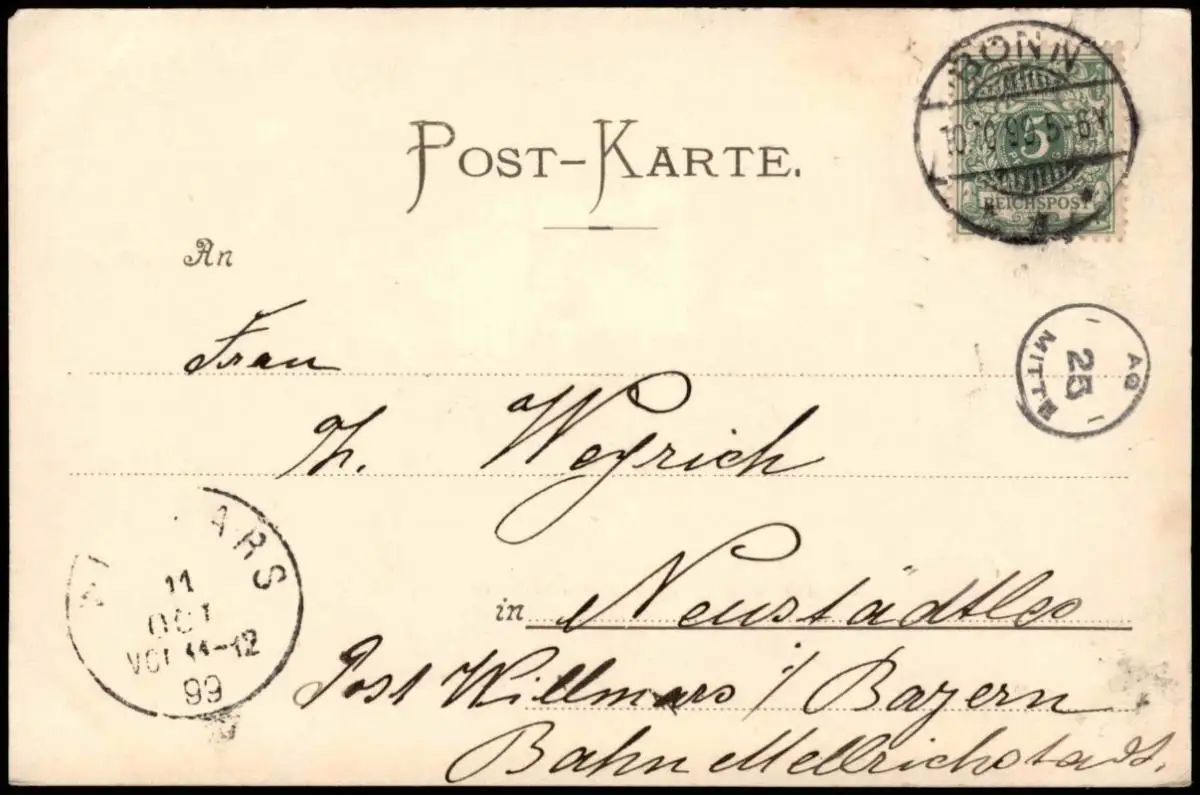 POST-KARTE.
BONN
10.10.99.5-6V.
5
REICHSPOST
An
AG
25
MITT.
Frau
H. Weyrich
ARS
11
OCT
VOR 11-12
99
in Neustädtles
Post Willmars i/ Bayern
Bahn Mellrichstadt.